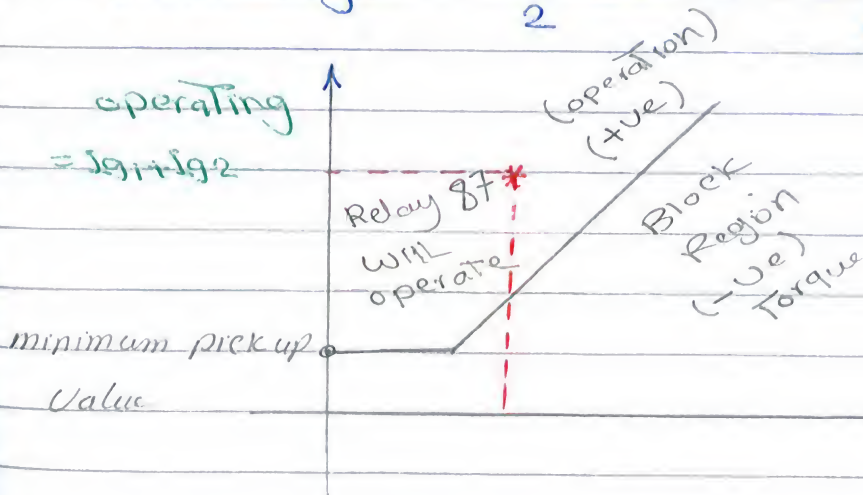 2
(operation)
(+ve)
operating
= Ig1+Ig2
Relay 87
will
operate
Block
Region
(-ve)
Torque
minimum pick up
Value